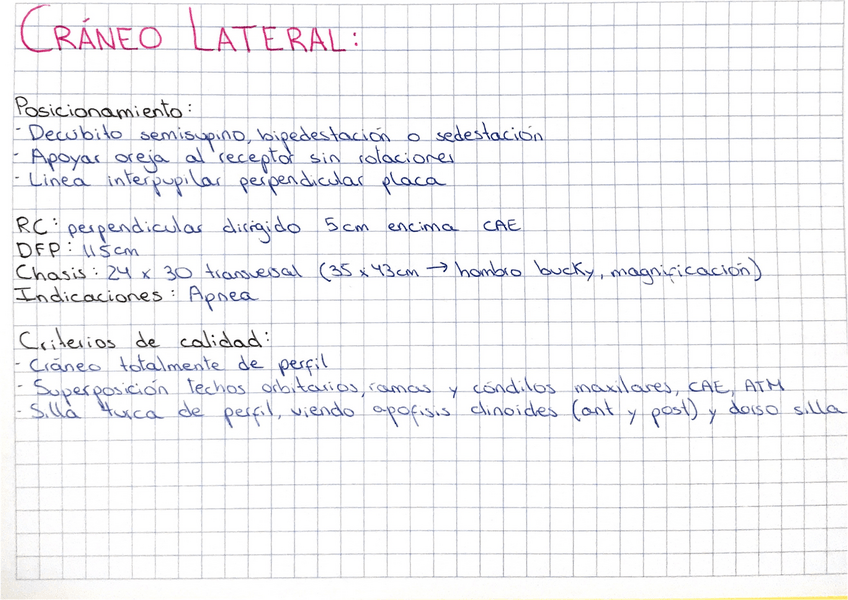 CRÁNEO LATERAL:
Posicionamiento:
- Decúbito semisupino, bipedestación o sedestación
- Apoyar oreja al receptor sin rotaciones
- Línea interpupilar perpendicular placa
RC: perpendicular dirigido 5cm encima CAE
DFP: 115cm
Chasis: 24 x 30 transversal (35 x 43cm → hombro bucky, magnificación)
Indicaciones: Apnea
Criterios de calidad:
- Cráneo totalmente de perfil
- Superposición techos orbitarios, ramas y cóndilos maxilares, CAE, ATM
- Silla turca de perfil, viendo apófisis clinoides (ant y post) y dorso silla